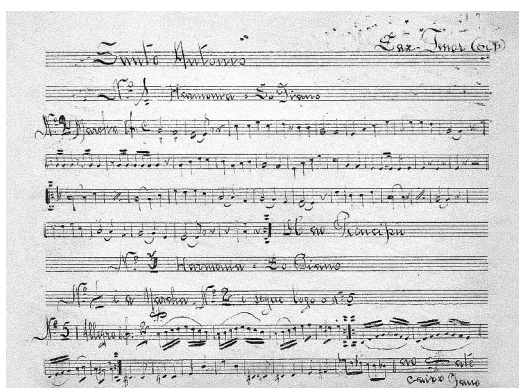 Santo Antonio
Sax-Tenor
Nº 1 Harmonia = So Piano
Nº 2 Marcha
Al so Principio
Nº 3 Harmonia = So Piano
Nº 4 é a Marcha Nº 2 e segue logo o Nº 5
Nº 5 Allegro